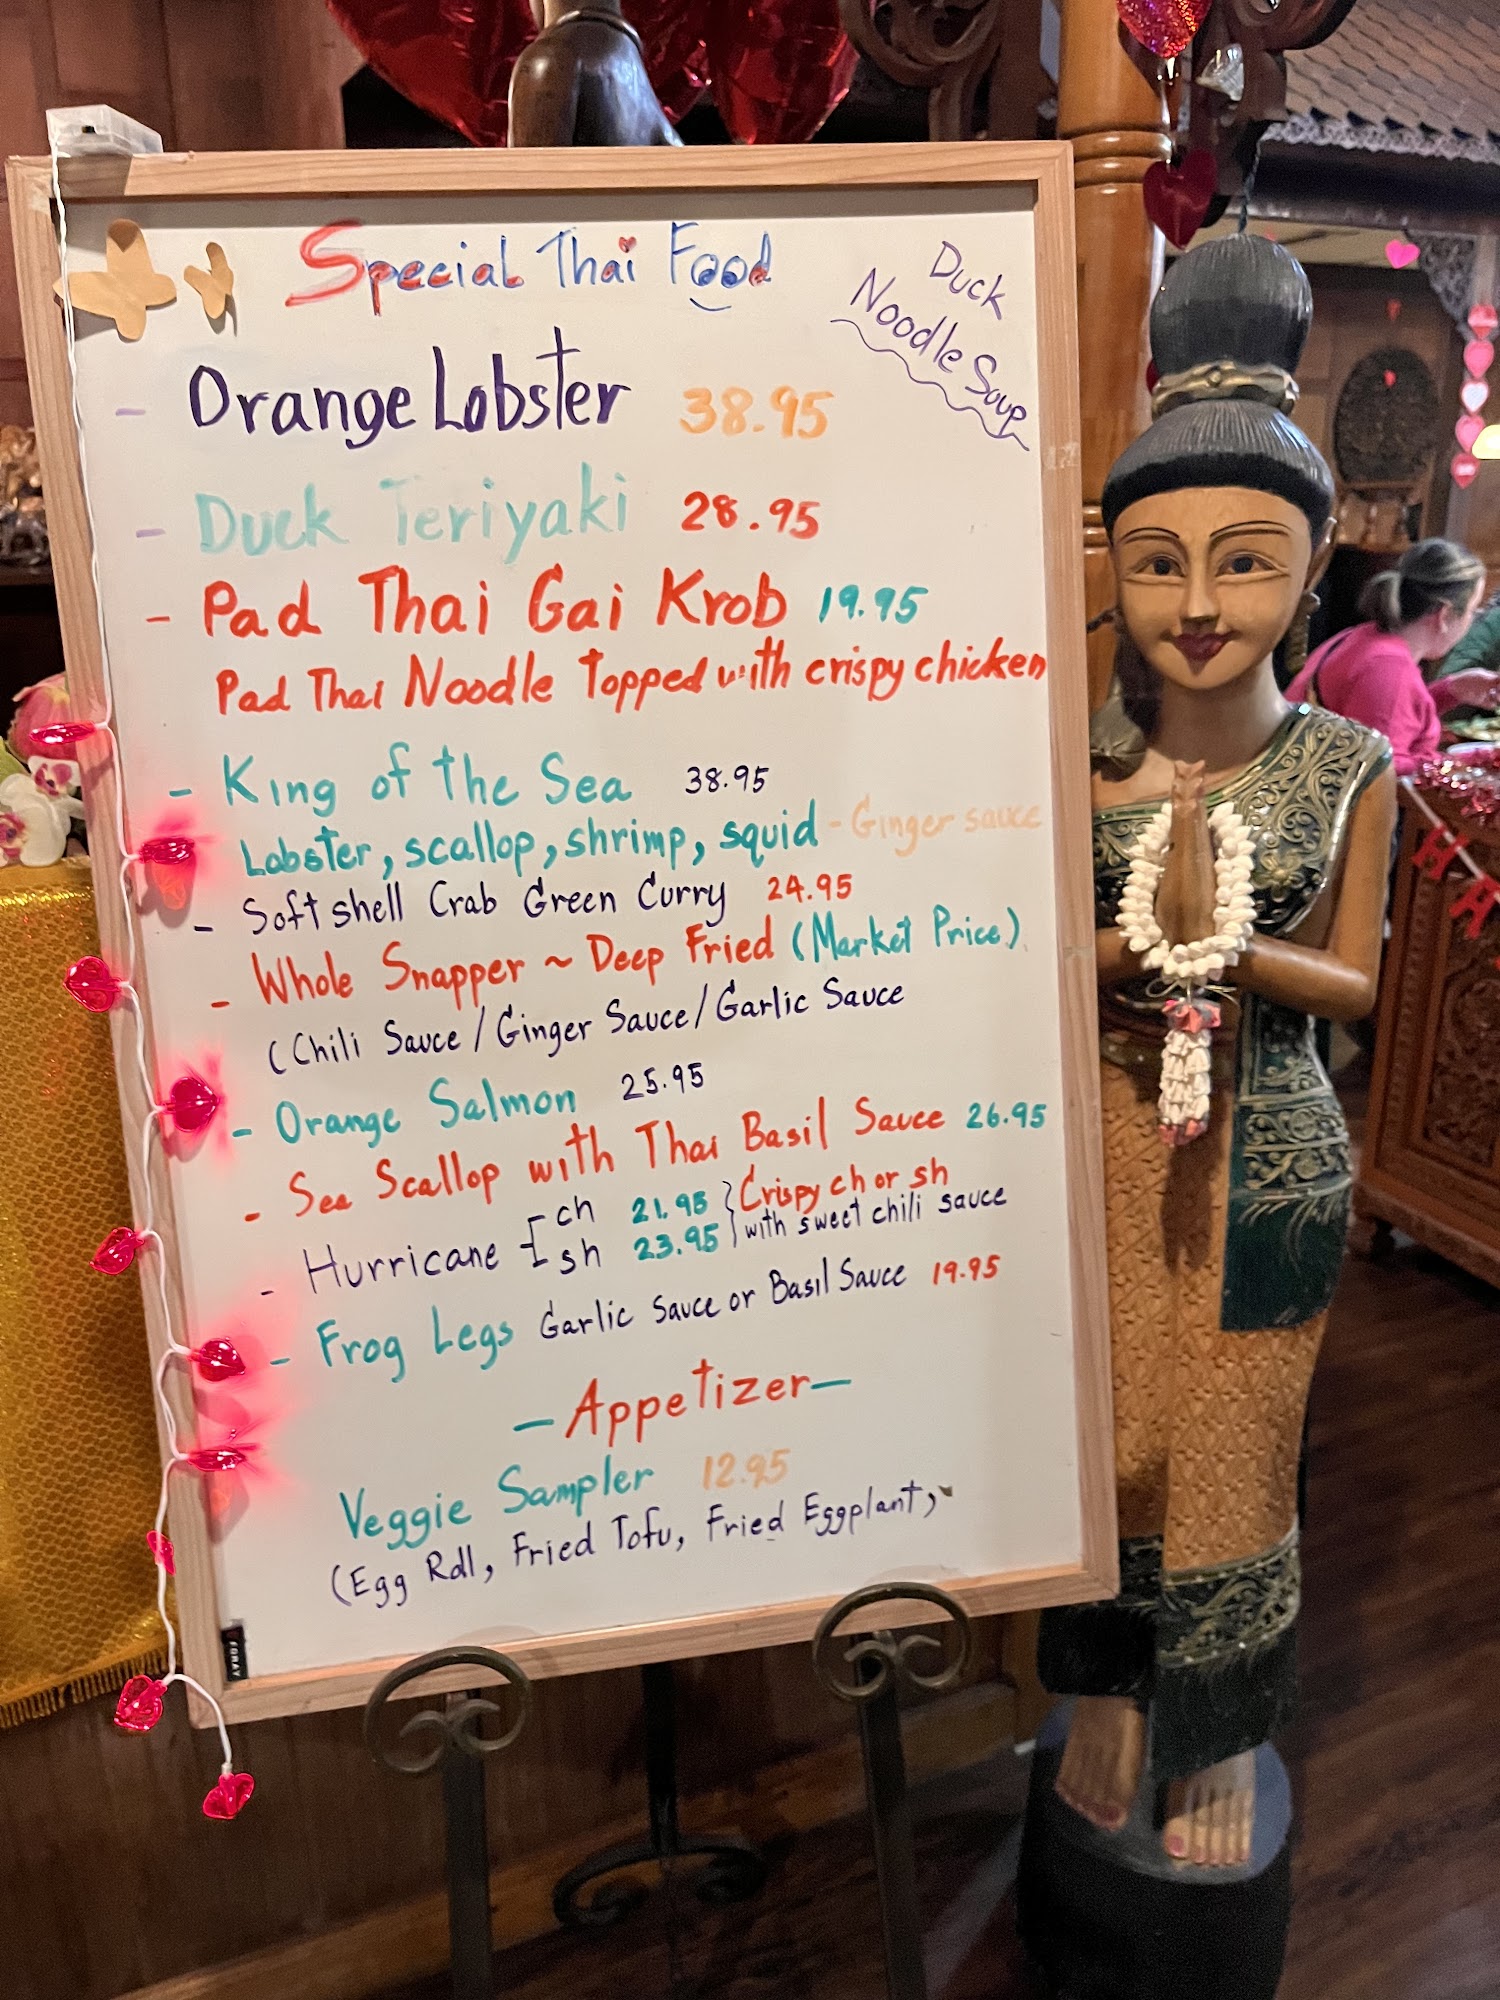 Special Thai Food
Duck
Noodle Soup
- Orange Lobster 38.95
- Duck Teriyaki 28.95
- Pad Thai Gai Krob 19.95
Pad Thai Noodle Topped with crispy chicken
- King of the Sea 38.95
Lobster, scallop, shrimp, squid - Ginger sauce
- Soft shell Crab Green Curry 24.95
- Whole Snapper ~ Deep Fried (Market Price)
(Chili Sauce / Ginger Sauce / Garlic Sauce
- Orange Salmon 25.95
- Sea Scallop with Thai Basil Sauce 26.95
- Hurricane
ch 21.95
sh 23.95
Crispy ch or sh
with sweet chili sauce
- Frog Legs Garlic Sauce or Basil Sauce 19.95
- Appetizer -
Veggie Sampler 12.95
(Egg Roll, Fried Tofu, Fried Eggplant,
FORAY